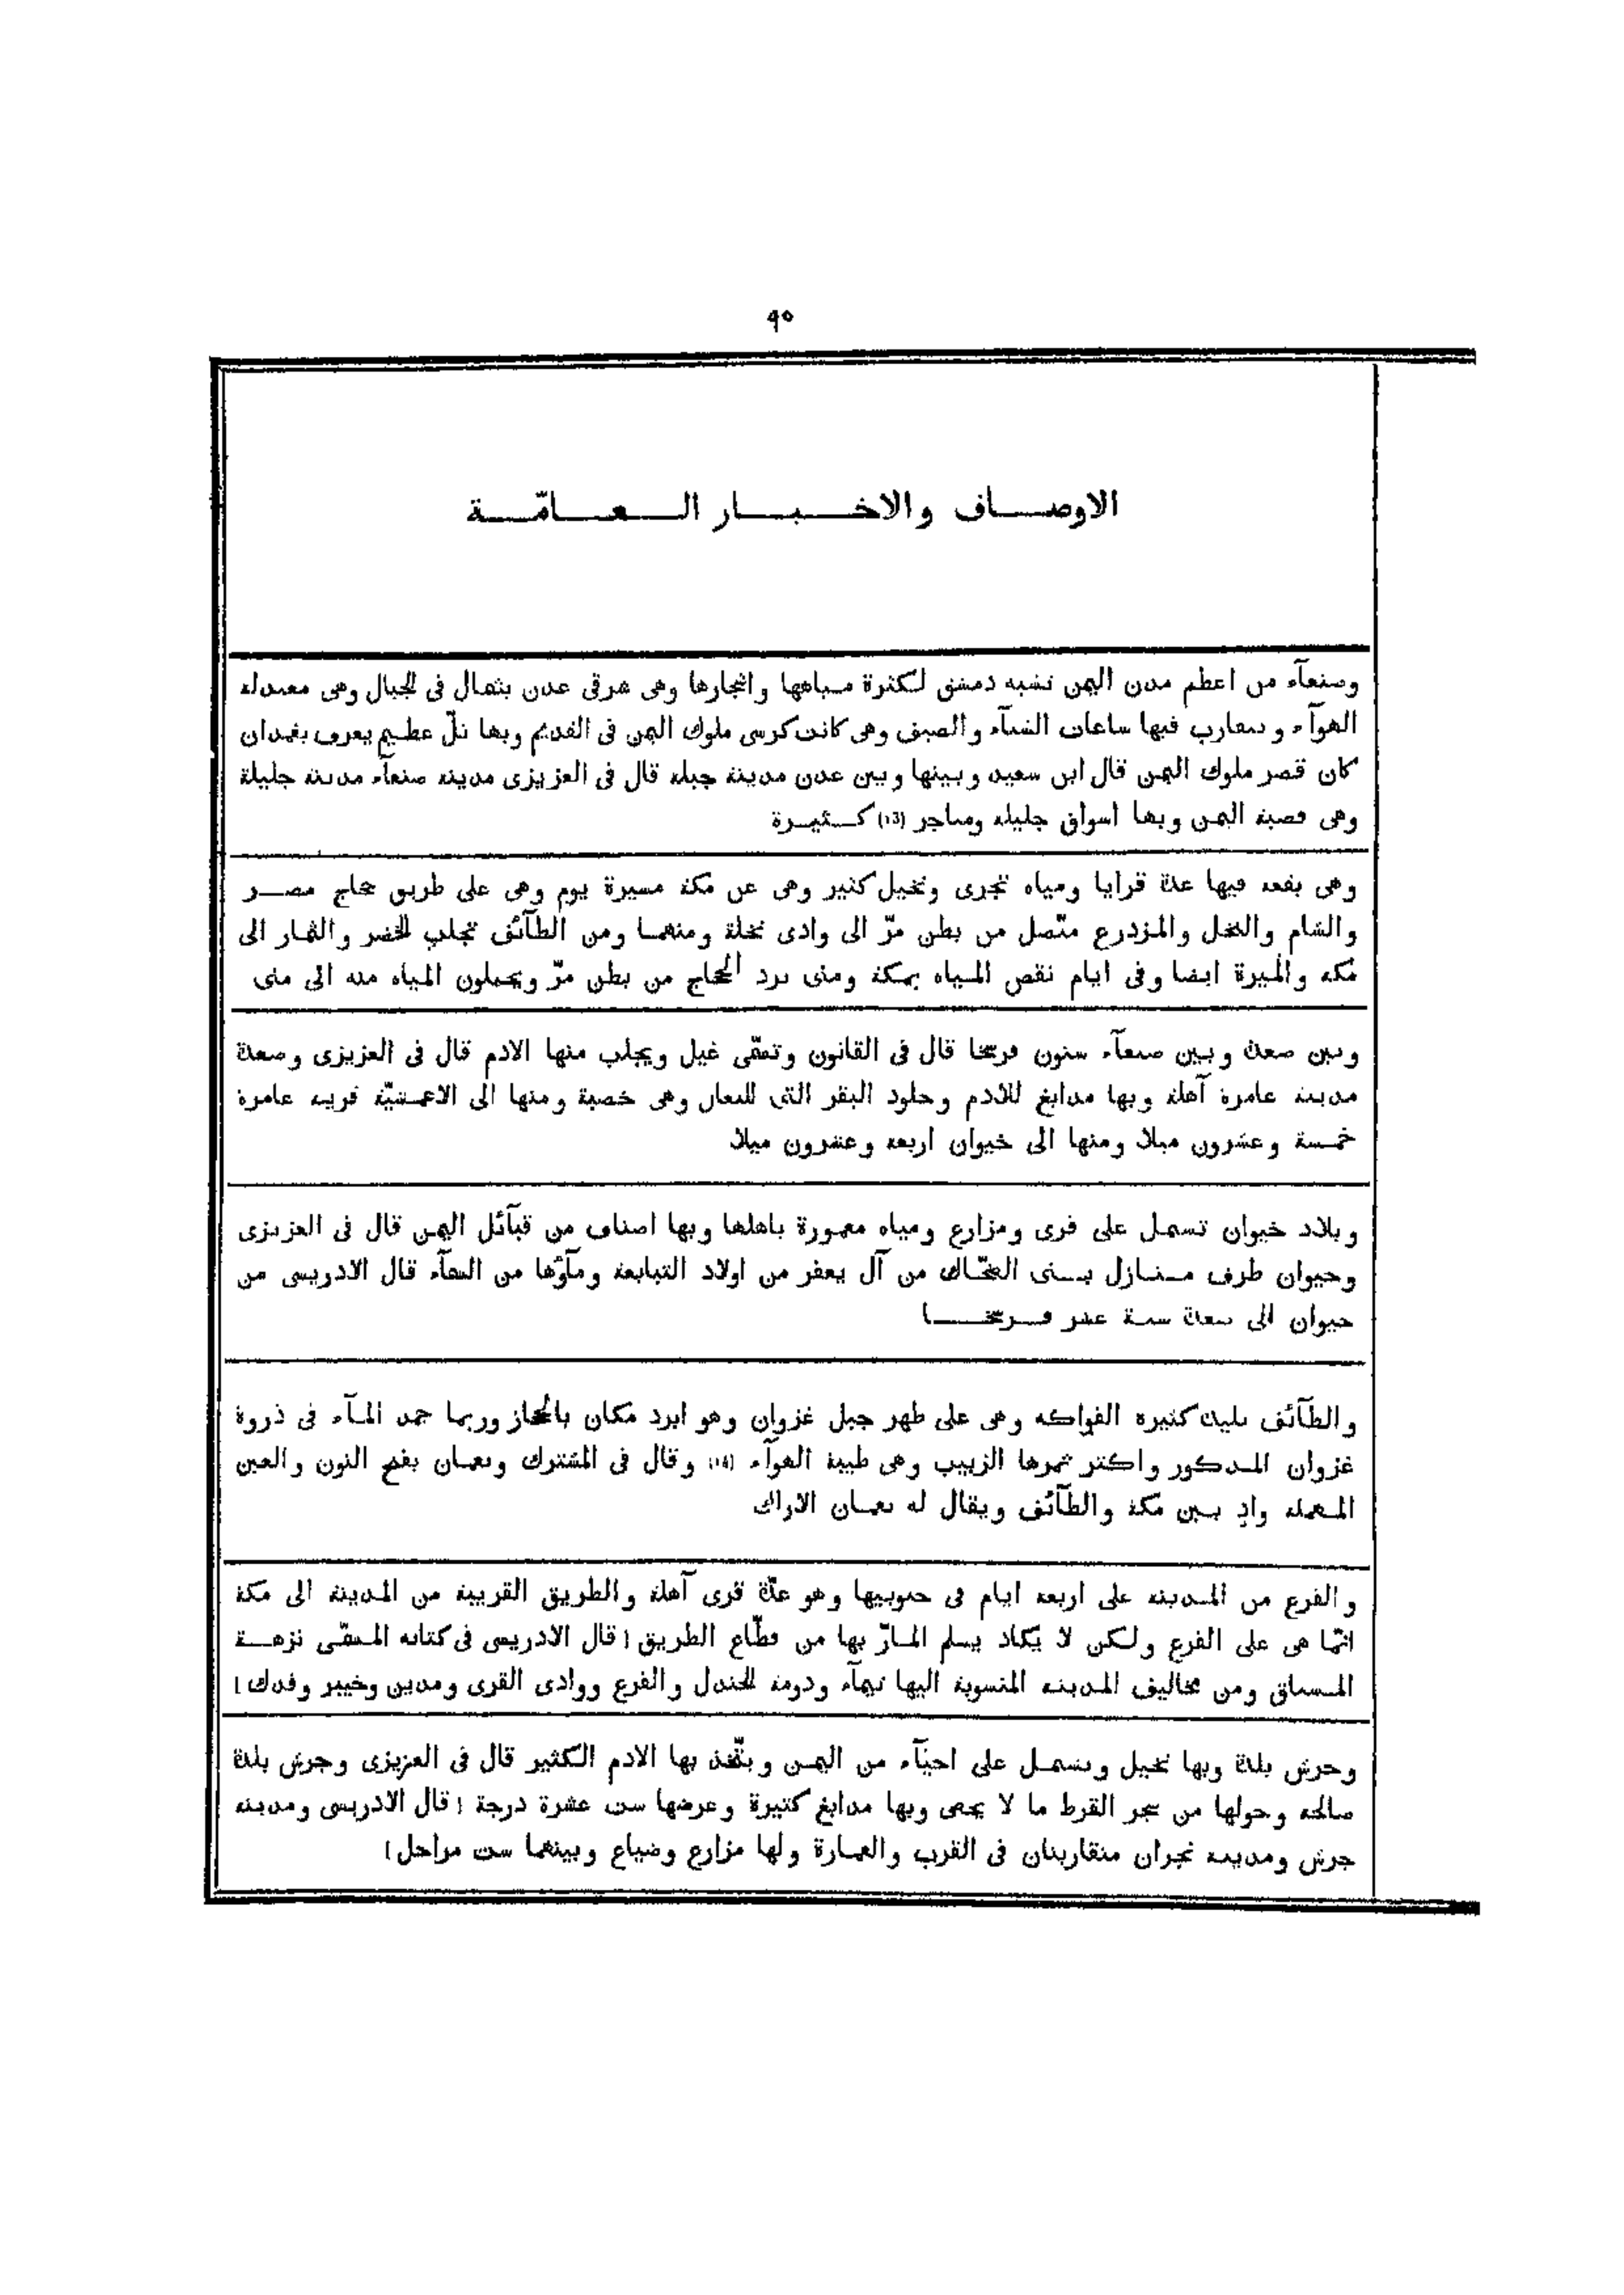 ٩٥
الاوصاف والاخبار العامّة
وصنعآء من اعظم مدن اليمن تشبه دمشق لكثرة مياهها واشجارها وهى شرقى عدن بشمال فى الجبال وهى معتدلة
الهوآء ويتقارب فيها ساعات الشتآء والصيف وهى كانت كرسى ملوك اليمن فى القديم وبها تلّ عظيم يعرف بغمدان
كان قصر ملوك اليمن قال ابن سعيد وبينها وبين عدن مدينة جبلة قال فى العزيزى مدينة صنعآء مدينة جليلة
وهى قصبة اليمن وبها اسواق جليلة ومتاجر (13) كثيرة
وهى بقعة فيها عدة قرايا ومياه تجرى ونخيل كثير وهى عن مكة مسيرة يوم وهى على طريق حجاج مصر
والشام والنخل والمزدرع متّصل من بطن مرّ الى وادى نخلة ومنهما ومن الطآئف تجلب الخضر والثمار الى
مكة والميرة ايضا وفى ايام نقص المياه بمكة ومنى يرد الحجاج من بطن مرّ ويحملون المياه منه الى منى
وبين صعدة وبين صنعآء ستون فرسخا قال فى القانون وتسمّى غيل ويجلب منها الادم قال فى العزيزى وصعدة
مدينة عامرة آهلة وبها مدابغ للادم وجلود البقر التى للنعال وهى خصبة ومنها الى الاعمشيّة قرية عامرة
خمسة وعشرون ميلا ومنها الى خيوان اربعة وعشرون ميلا
وبلاد خيوان تشتمل على قرى ومزارع ومياه معمورة باهلها وبها اصناف من قبآئل اليمن قال فى العزيزى
وخيوان طرف منازل بنى الضحّاك من آل يعفر من اولاد التبابعة ومآؤها من السمآء قال الادريسى من
خيوان الى صعدة ستة عشر فرسخا
والطآئف بليدة كثيرة الفواكه وهى على ظهر جبل غزوان وهو ابرد مكان بالحجاز وربما جمد المآء فى ذروة
غزوان المذكور واكثر ثمرها الزبيب وهى طيبة الهوآء (14) وقال فى المشترك ونعمان بفتح النون والعين
المهملة وادٍ بين مكة والطآئف ويقال له نعمان الاراك
والفرع من المدينة على اربعة ايام فى جنوبيها وهو عدّة قرى آهلة والطريق القريبة من المدينة الى مكة
انّما هى على الفرع ولكن لا يكاد يسلم المارّ بها من قطّاع الطريق [قال الادريسى فى كتابه المسمّى نزهة
المشتاق ومن مخاليف المدينة المنسوبة اليها تيمآء ودومة الجندل والفرع ووادى القرى ومدين وخيبر وفدك]
وجرش بلدة وبها نخيل وتشتمل على احيآء من اليمن ويتّخذ بها الادم الكثير قال فى العزيزى وجرش بلدة
صالحة وحولها من شجر القرظ ما لا يحصى وبها مدابغ كثيرة وعرضها ست عشرة درجة [قال الادريسى ومدينة
جرش ومدينة نجران متقاربتان فى القرب والعمارة ولها مزارع وضياع وبينهما ست مراحل]